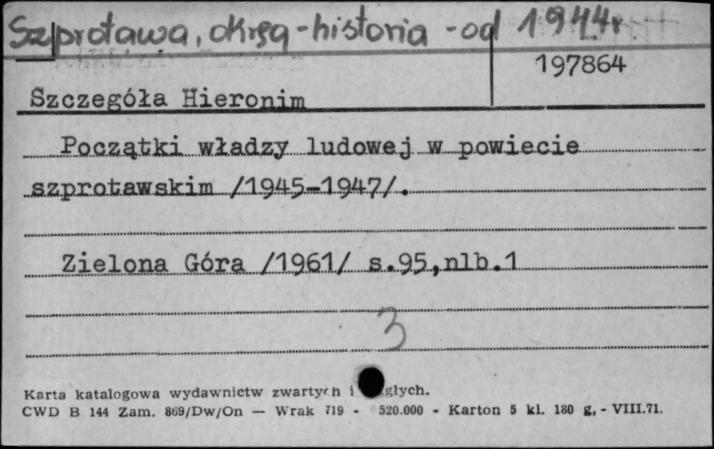 Szprotawa, okręg - historia - od 1944r.
197864
Szczegóła Hieronim
Początki władzy ludowej w powiecie
szprotawskim /1945-1947/.
Zielona Góra /1961/ s.95,nlb.1
3
Karta katalogowa wydawnictw zwartych i głych.
CWD B 144 Zam. 869/Dw/On — Wrak 719 - 520.000 - Karton 5 kl. 180 g. - VIII.71.